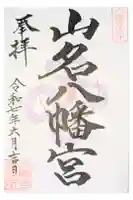 奉拝
山名八幡宮
令和七年六月吉日